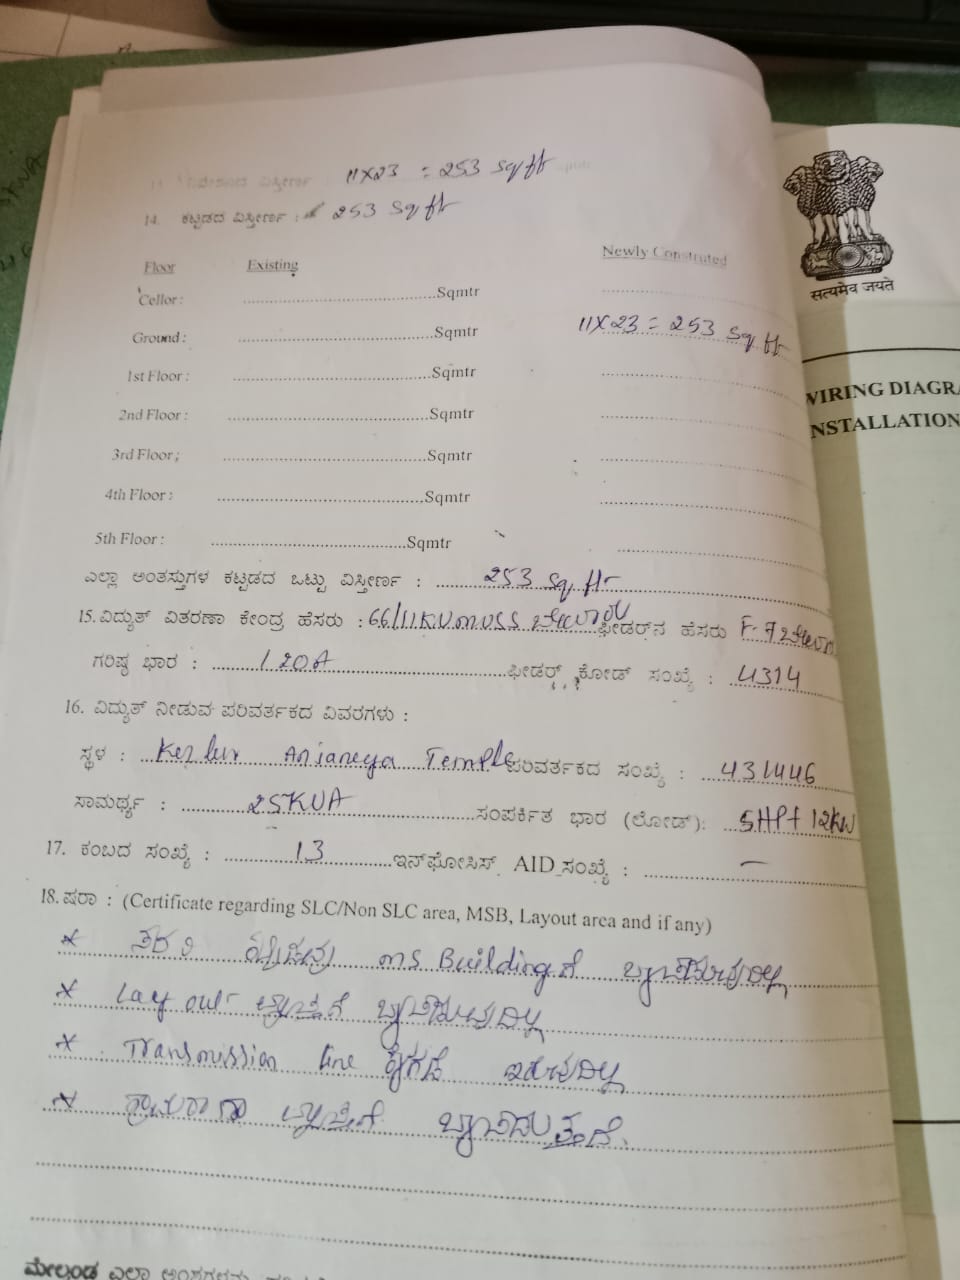 11X23 = 253 sq ft
14. ಕಟ್ಟಡದ ವಿಸ್ತೀರ್ಣ : 253 sq ft
Floor Existing Newly Constructed
Cellor : ........Sqmtr ........
Ground : ........Sqmtr 11X23 = 253 sq ft
1st Floor : ........Sqmtr ........
2nd Floor : ........Sqmtr ........
3rd Floor ; ........Sqmtr ........
4th Floor : ........Sqmtr ........
5th Floor : ........Sqmtr ........
ಎಲ್ಲಾ ಅಂತಸ್ತುಗಳ ಕಟ್ಟಡದ ಒಟ್ಟು ವಿಸ್ತೀರ್ಣ : 253 sq ft
15. ವಿದ್ಯುತ್ ವಿತರಣಾ ಕೇಂದ್ರ ಹೆಸರು : 66/11KV MUSS ಫೀಡರ್‌ನ ಹೆಸರು F-7
ಗರಿಷ್ಠ ಭಾರ : 120A ಫೀಡರ್ ಕೋಡ್ ಸಂಖ್ಯೆ : 4314
16. ವಿದ್ಯುತ್ ನೀಡುವ ಪರಿವರ್ತಕದ ವಿವರಗಳು :
ಸ್ಥಳ : Anjaneya Temple ಪರಿವರ್ತಕದ ಸಂಖ್ಯೆ : 431446
ಸಾಮರ್ಥ್ಯ : 25KVA ಸಂಪರ್ಕಿತ ಭಾರ (ಲೋಡ್): 5HP+12KW
17. ಕಂಬದ ಸಂಖ್ಯೆ : 13 ಇನ್‌ಫೋಸಿಸ್ AID ಸಂಖ್ಯೆ : —
18. ಷರಾ : (Certificate regarding SLC/Non SLC area, MSB, Layout area and if any)
* ಸದರಿ MS Buildingಗೆ
* Layout
* Transmission line ಇರುವುದಿಲ್ಲ
*
ಮೇಲ್ಕಂಡ ಎಲ್ಲಾ
सत्यमेव जयते
WIRING DIAGRA
INSTALLATION